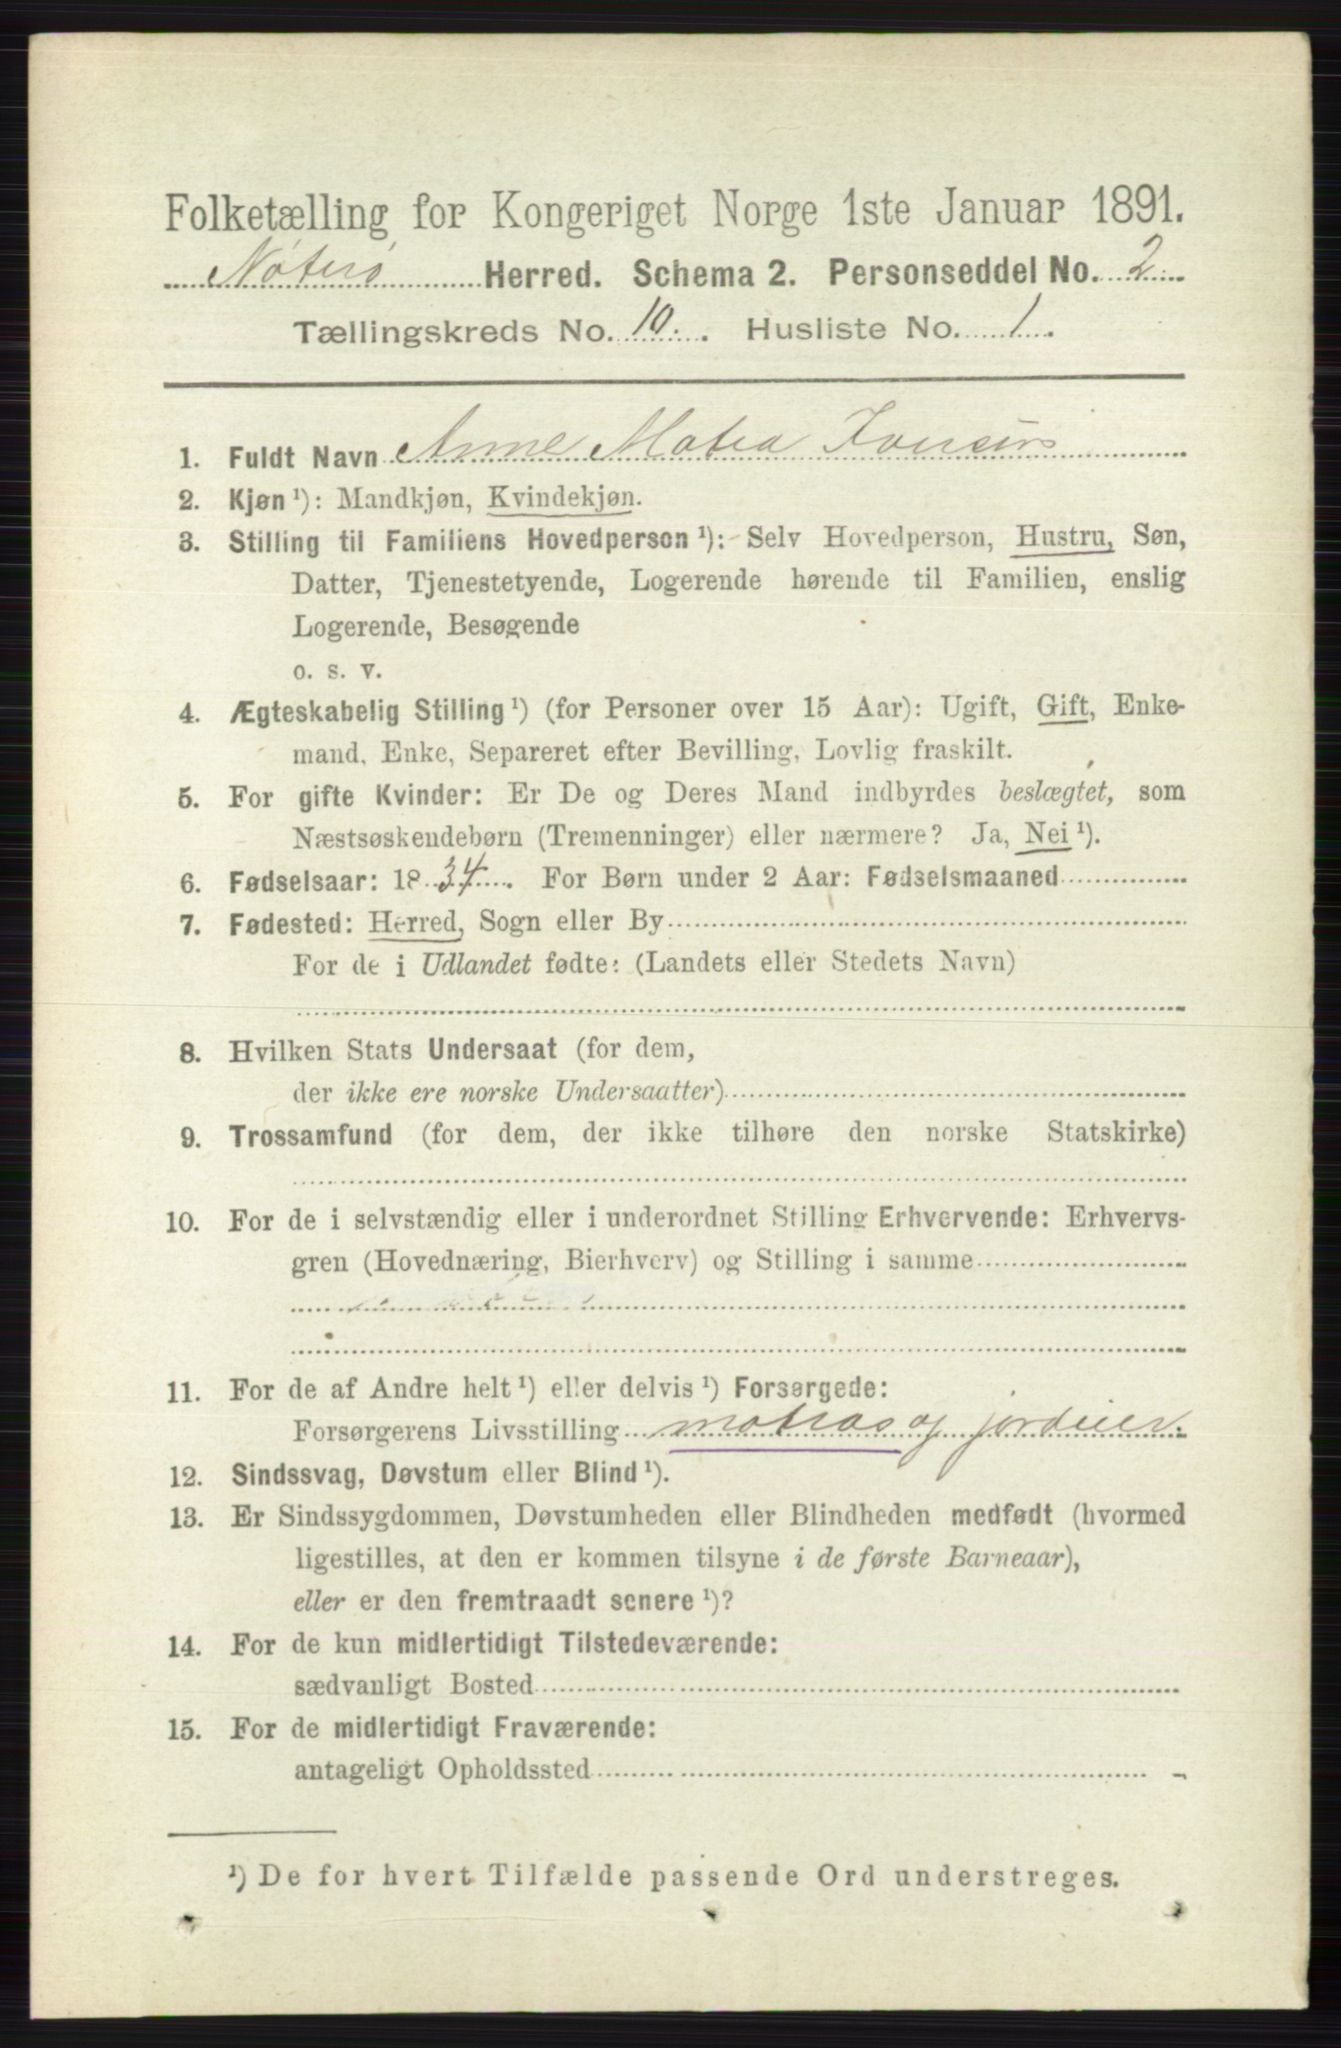 Folketælling for Kongeriget Norge 1ste Januar 1891.
Nøterø Herred. Schema 2. Personseddel No. 2
Tællingskreds No. 10. Husliste No. 1.
1. Fuldt Navn Anne Matea
2. Kjøn ¹): Mandkjøn, Kvindekjøn.
3. Stilling til Familiens Hovedperson ¹): Selv Hovedperson, Hustru, Søn,
Datter, Tjenestetyende, Logerende hørende til Familien, enslig
Logerende, Besøgende
o. s. v.
4. Ægteskabelig Stilling ¹) (for Personer over 15 Aar): Ugift, Gift, Enke-
mand, Enke, Separeret efter Bevilling, Lovlig fraskilt.
5. For gifte Kvinder: Er De og Deres Mand indbyrdes beslægtet, som
Næstsøskendebørn (Tremenninger) eller nærmere? Ja, Nei ¹).
6. Fødselsaar: 1834. For Børn under 2 Aar: Fødselsmaaned
7. Fødested: Herred, Sogn eller By
For de i Udlandet fødte: (Landets eller Stedets Navn)
8. Hvilken Stats Undersaat (for dem,
der ikke ere norske Undersaatter)
9. Trossamfund (for dem, der ikke tilhøre den norske Statskirke)
10. For de i selvstændig eller i underordnet Stilling Erhvervende: Erhvervs-
gren (Hovednæring, Bierhverv) og Stilling i samme
11. For de af Andre helt ¹) eller delvis ¹) Forsørgede:
Forsørgerens Livsstilling matros og jordeier.
12. Sindssvag, Døvstum eller Blind ¹).
13. Er Sindssygdommen, Døvstumheden eller Blindheden medfødt (hvormed
ligestilles, at den er kommen tilsyne i de første Barneaar),
eller er den fremtraadt senere ¹)?
14. For de kun midlertidigt Tilstedeværende:
sædvanligt Bosted
15. For de midlertidigt Fraværende:
antageligt Opholdssted
¹) De for hvert Tilfælde passende Ord understreges.